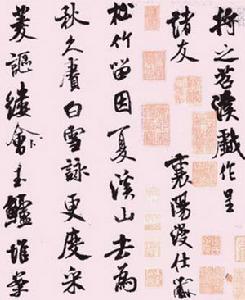 將之苕溪戲作呈
諸友
襄陽漫仕黻
松竹留因夏溪山去為
秋久賡白雪詠更度采
菱謳縷會玉鱸堆案